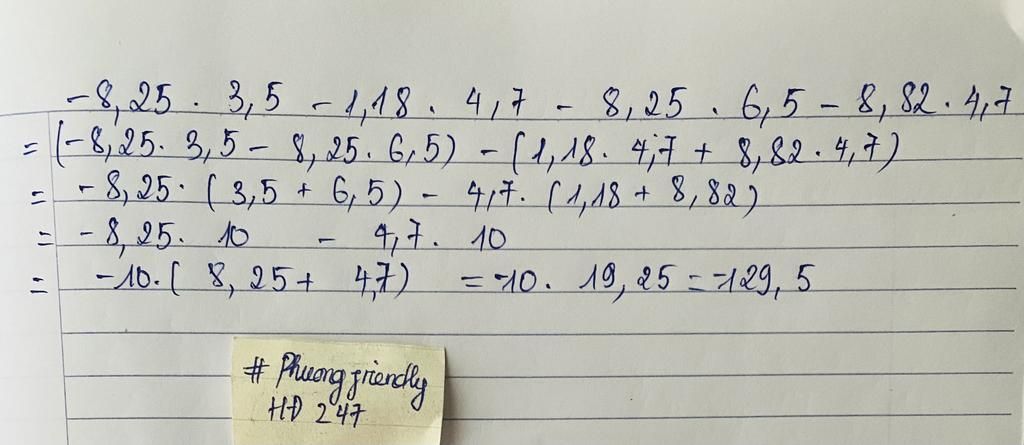 -8,25 . 3,5 - 1,18 . 4,7 - 8,25 . 6,5 - 8,82 . 4,7
= (-8,25 . 3,5 - 8,25 . 6,5) - (1,18 . 4,7 + 8,82 . 4,7)
= -8,25 . (3,5 + 6,5) - 4,7 . (1,18 + 8,82)
= -8,25 . 10 - 4,7 . 10
= -10 . (8,25 + 4,7) = -10 . 19,25 = -129,5
# Phuong friendly
HĐ 247